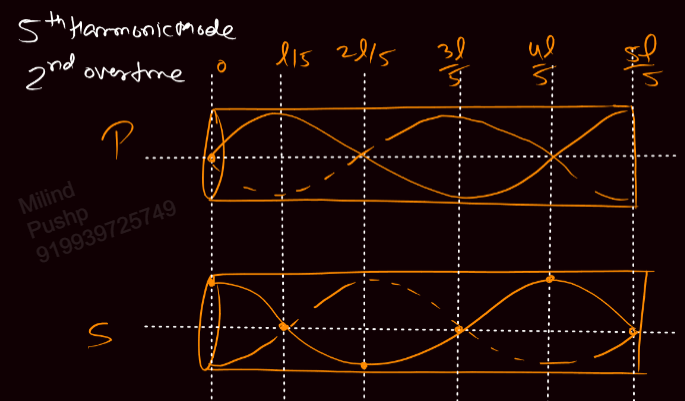 5th Harmonic mode
2nd overtone
0 l/5 2l/5 3l/5 4l/5 5l/5
P
Milind
Pushp
919939725749
S